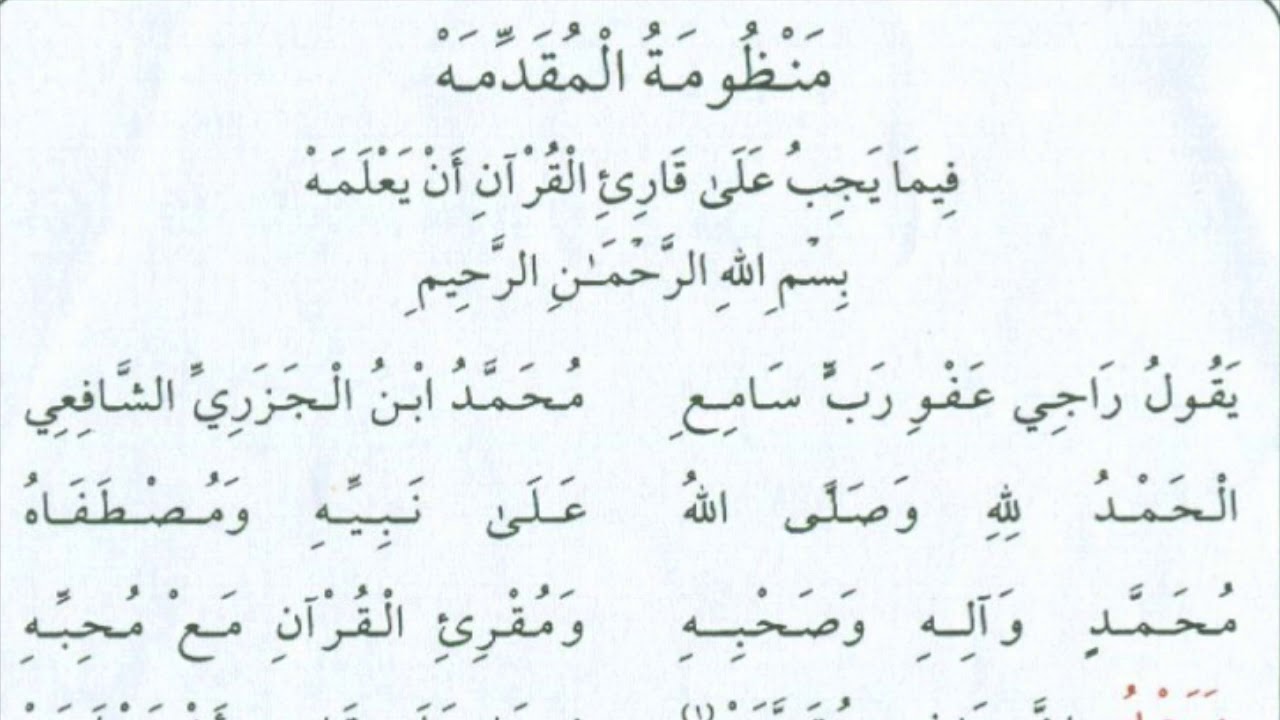 مَنْظُومَةُ الْمُقَدِّمَهْ
فِيمَا يَجِبُ عَلَىٰ قَارِئِ الْقُرْآنِ أَنْ يَعْلَمَهْ
بِسْمِ اللهِ الرَّحْمَـٰنِ الرَّحِيمِ
يَقُولُ رَاجِي عَفْوِ رَبٍّ سَامِعِ مُحَمَّدُ ابْنُ الْجَزَرِيِّ الشَّافِعِي
الْحَمْدُ لِلهِ وَصَلَّى اللهُ عَلَىٰ نَبِيِّهِ وَمُصْطَفَاهُ
مُحَمَّدٍ وَآلِهِ وَصَحْبِهِ وَمُقْرِئِ الْقُرْآنِ مَعْ مُحِبِّهِ